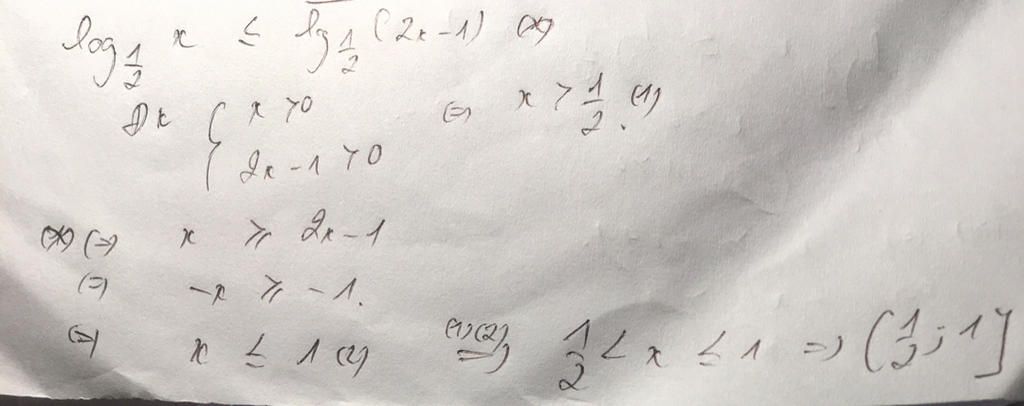 log 1/2 x ≤ lg 1/2 (2x-1) (*)
Đk { x > 0 (=) x > 1/2. (1)
2x - 1 > 0
(*) (=) x ≥ 2x - 1
(=) -x ≥ -1.
(=) x ≤ 1 (2) (1)(2) => 1/2 < x ≤ 1 => (1/2; 1]